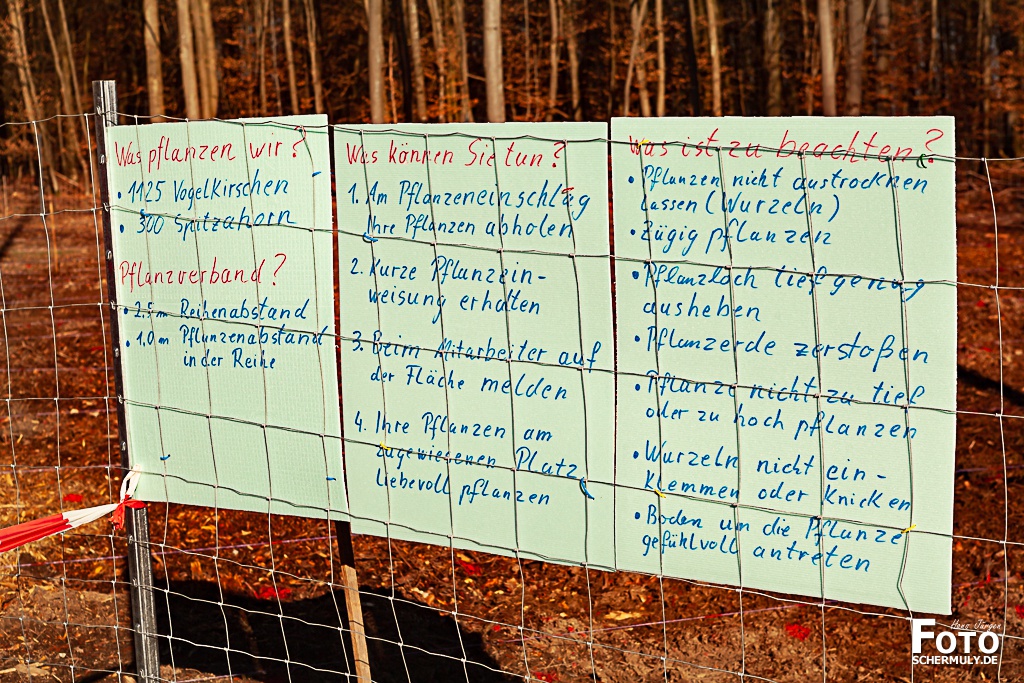 Was pflanzen wir?
• 1125 Vogelkirschen
• 300 Spitzahorn
Pflanzverband?
• 2.5 m Reihenabstand
• 1.0 m Pflanzenabstand
in der Reihe
Was können Sie tun?
1. Am Pflanzeneinschlag
Ihre Pflanzen abholen
2. Kurze Pflanzein-
weisung erhalten
3. Beim Mitarbeiter auf
der Fläche melden
4. Ihre Pflanzen am
zugewiesenen Platz
liebevoll pflanzen
Was ist zu beachten?
• Pflanzen nicht austrocknen
lassen (Wurzeln)
• Zügig pflanzen
• Pflanzloch tief genug
ausheben
• Pflanzerde zerstoßen
• Pflanze nicht zu tief
oder zu hoch pflanzen
• Wurzeln nicht ein-
klemmen oder knicken
• Boden um die Pflanze
gefühlvoll antreten
Hans Jürgen
FOTO
SCHERMULY.DE